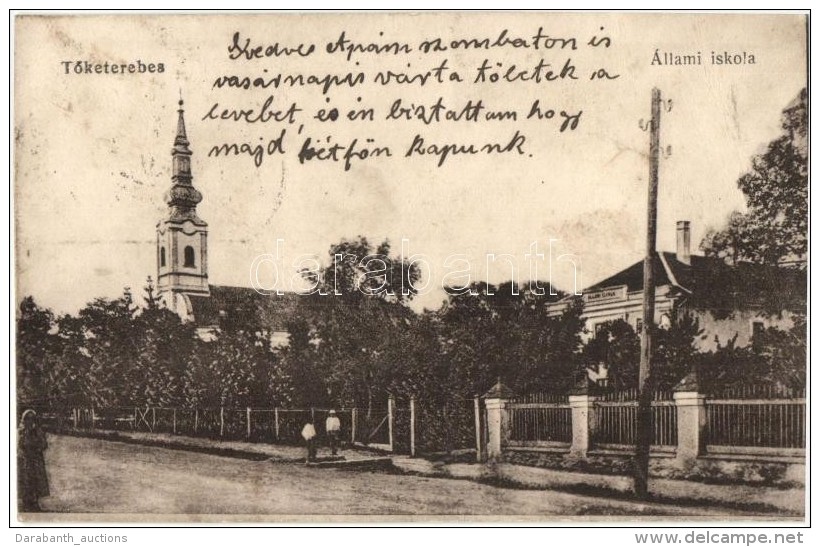 Tőketerebes
Állami iskola
Kedves Apám szombaton is
vasárnapis várta töletek a
levebet, és én biztattam hogy
majd hétfön kapunk.
darabanth
Darabanth_auctions
www.delcampe.net